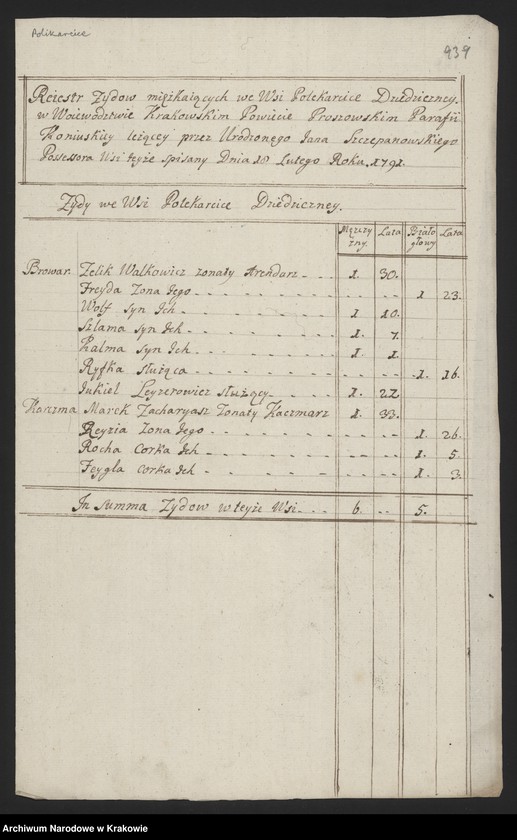 Polikarcice
939
Reiestr Zydow mięszkaiących we Wsi Polekarcice Dziedziczney.
w Woiewodztwie Krakowskim Powiecie Proszowskim Parafii
Koniuskiy leżącey przez Urodzonego Jana Szczepanowskiego
Possessora Wsi teyże spisany Dnia 18 Lutego Roku 1791.
Zydy we Wsi Polekarcice Dziedziczney.
Męzczy Lata Biało Lata
zny. głowy
Browar. Zelik Walkowicz zonaty Arendarz - - - 1. 30.
Freyda Zona Jego - - - - - - - - 1 23.
Wolf syn Jch - - - - - 1 10.
Szlama syn Jch - - - - 1. 7.
Kalma syn Jch - - - - 1. 1.
Ryfka służąca - - - - - - - - 1. 16.
Jukiel Leyzerowicz służący - - - 1. 22
Karczma Marek Zacharyasz Zonaty Kaczmarz 1. 33.
Reyzia Zona Jego - - - - - - - 1. 26.
Rocha Corka Jch - - - - - - - 1. 5.
Feygla Corka Jch - - - - - - - 1. 3.
Jn Summa Zydow w teyże Wsi - - - 6. - - 5.
Archiwum Narodowe w Krakowie